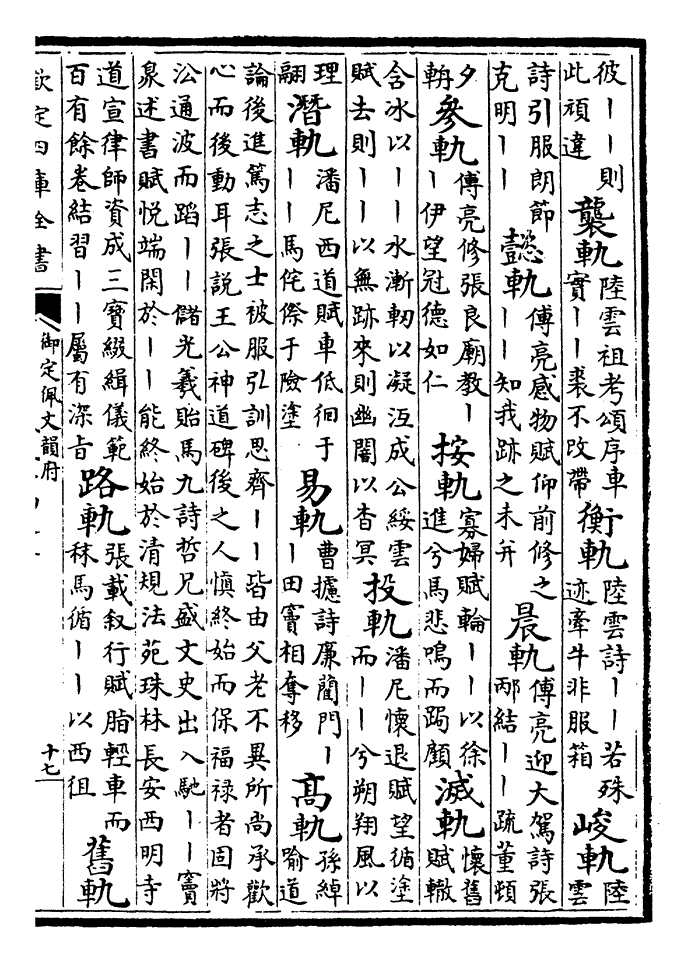 彼丨丨則
此頑違
襲軌
陸雲祖考頌序車
實丨丨裘不改帶
衡軌
陸雲詩丨丨若殊
迹牽牛非服箱
峻軌
陸
雲
詩引服朗節
克明丨丨
懿軌
傅亮感物賦仰前修之
丨丨知我跡之未并
晨軌
傅亮迎大駕詩張
邴結丨丨疏董頓
夕
輈
參軌
傅亮修張良廟教丨
丨伊望冠德如仁
按軌
寡婦賦輪丨丨以徐
進兮馬悲鳴而跼顧
滅軌
懷舊
賦轍
含冰以丨丨水漸軔以凝冱成公綏雲
賦去則丨丨以無跡來則幽闇以杳冥
投軌
潘尼懷退賦望循塗
而丨丨兮朔翔風以
理
翮
潛軌
潘尼西道賦車低徊于
丨丨馬侘傺于險塗
易軌
曹攄詩廉藺門丨
丨田竇相奪移
高軌
孫綽
喻道
論後進篤志之士被服弘訓思齊丨丨皆由父老不異所尚承歡
心而後動耳張説王公神道碑後之人慎終始而保福禄者固將
㳂通波而蹈丨丨儲光羲貽馬九詩哲兄盛文史出入馳丨丨竇
臮述書賦悦端閑於丨丨能終始於清規法苑珠林長安西明寺
道宣律師資成三寶綴緝儀範
百有餘卷結習丨丨屬有深旨
路軌
張載叙行賦脂輕車而
秣馬循丨丨以西徂
舊軌
欽定四庫全書
御定佩文韻府
十七